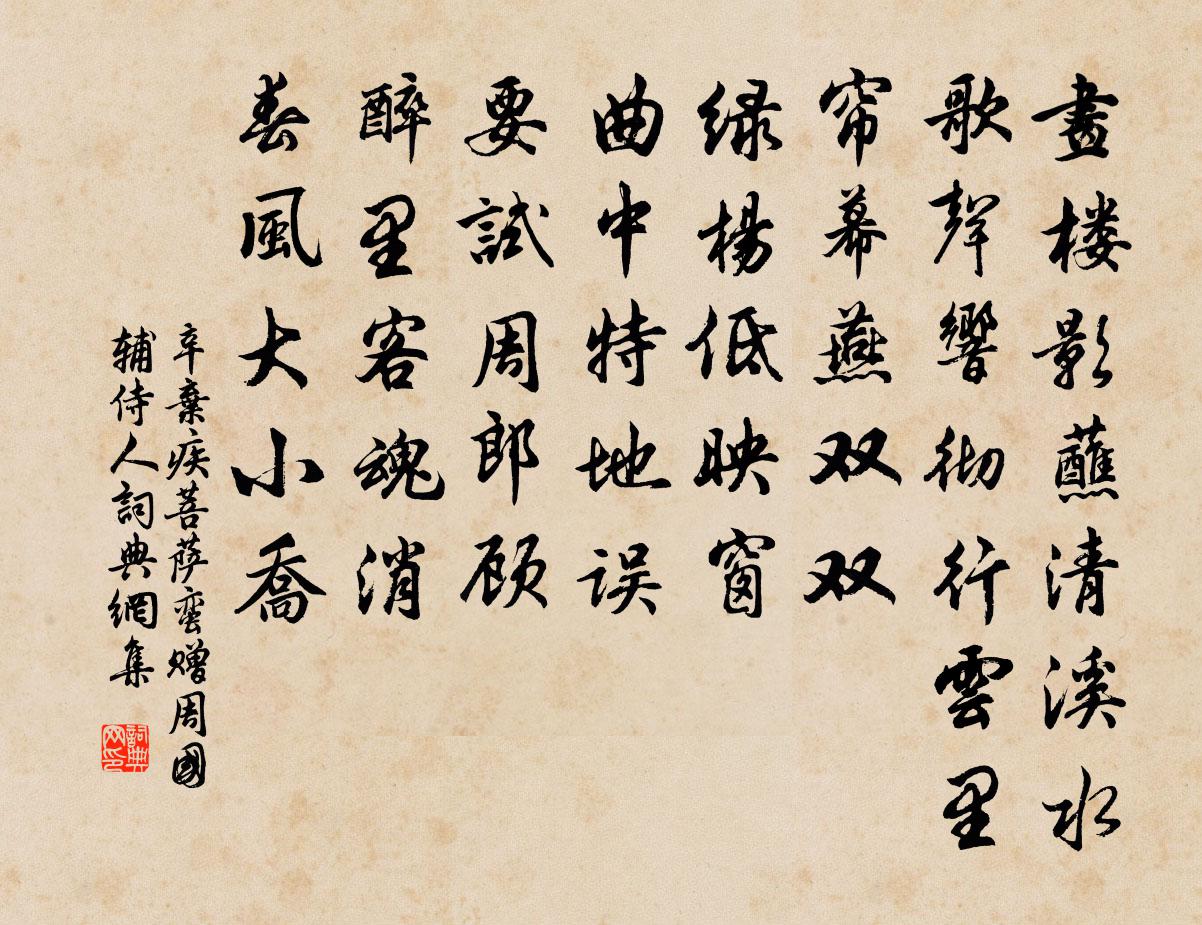 畫楼影蘸清溪水
歌聲響彻行雲里
帘幕燕双双
绿楊低映窗
曲中特地误
要試周郎顾
醉里客魂消
春風大小喬
辛棄疾菩萨蛮赠周國
辅侍人詞典網集
詞典网印